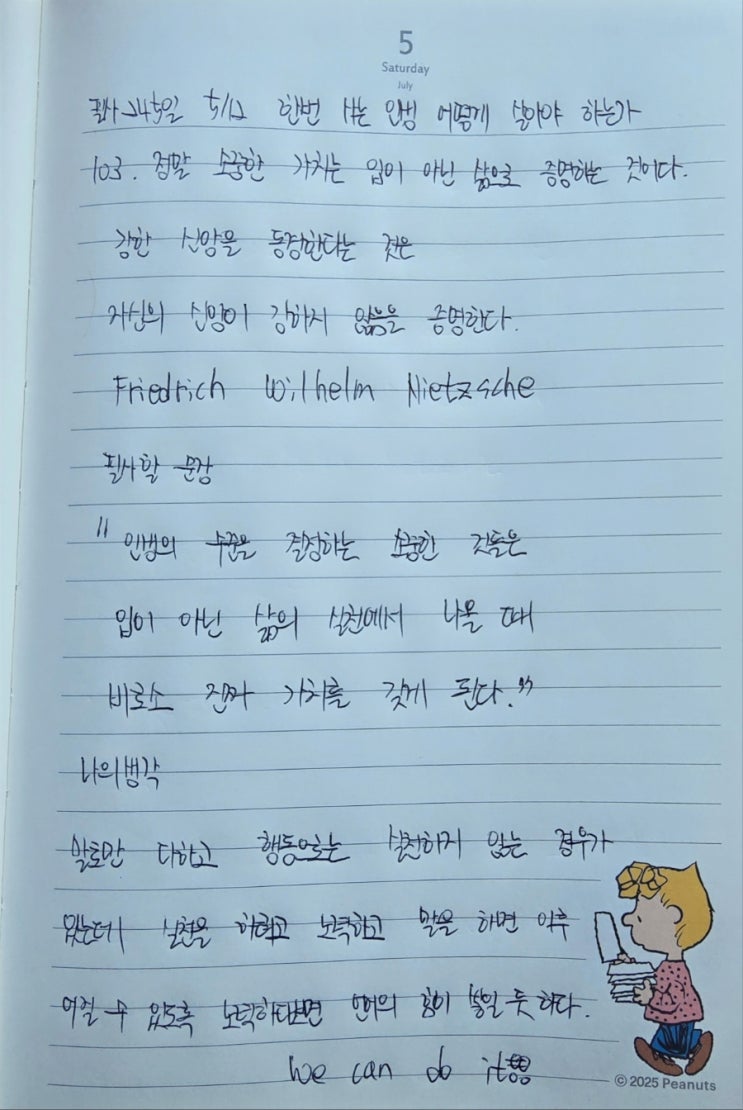 5
Saturday
July
필사245일 5/12 한번 사는 인생 어떻게 살아야 하는가
103. 정말 소중한 가치는 입이 아닌 삶으로 증명하는 것이다.
강한 신앙을 동경한다는 것은
자신의 신앙이 강하지 않음을 증명한다.
Friedrich Wilhelm Nietzsche
필사할 문장
"인생의 수준을 결정하는 소중한 것들은
입이 아닌 삶의 실천에서 나올 때
비로소 진짜 가치를 갖게 된다."
나의생각
말로만 다하고 행동으로는 실천하지 않는 경우가
있는데 실천을 하려고 노력하고 말을 하면 이루
어질 수 있도록 노력하다보면 언어의 힘이 쌓일 듯 하다.
We can do it
© 2025 Peanuts